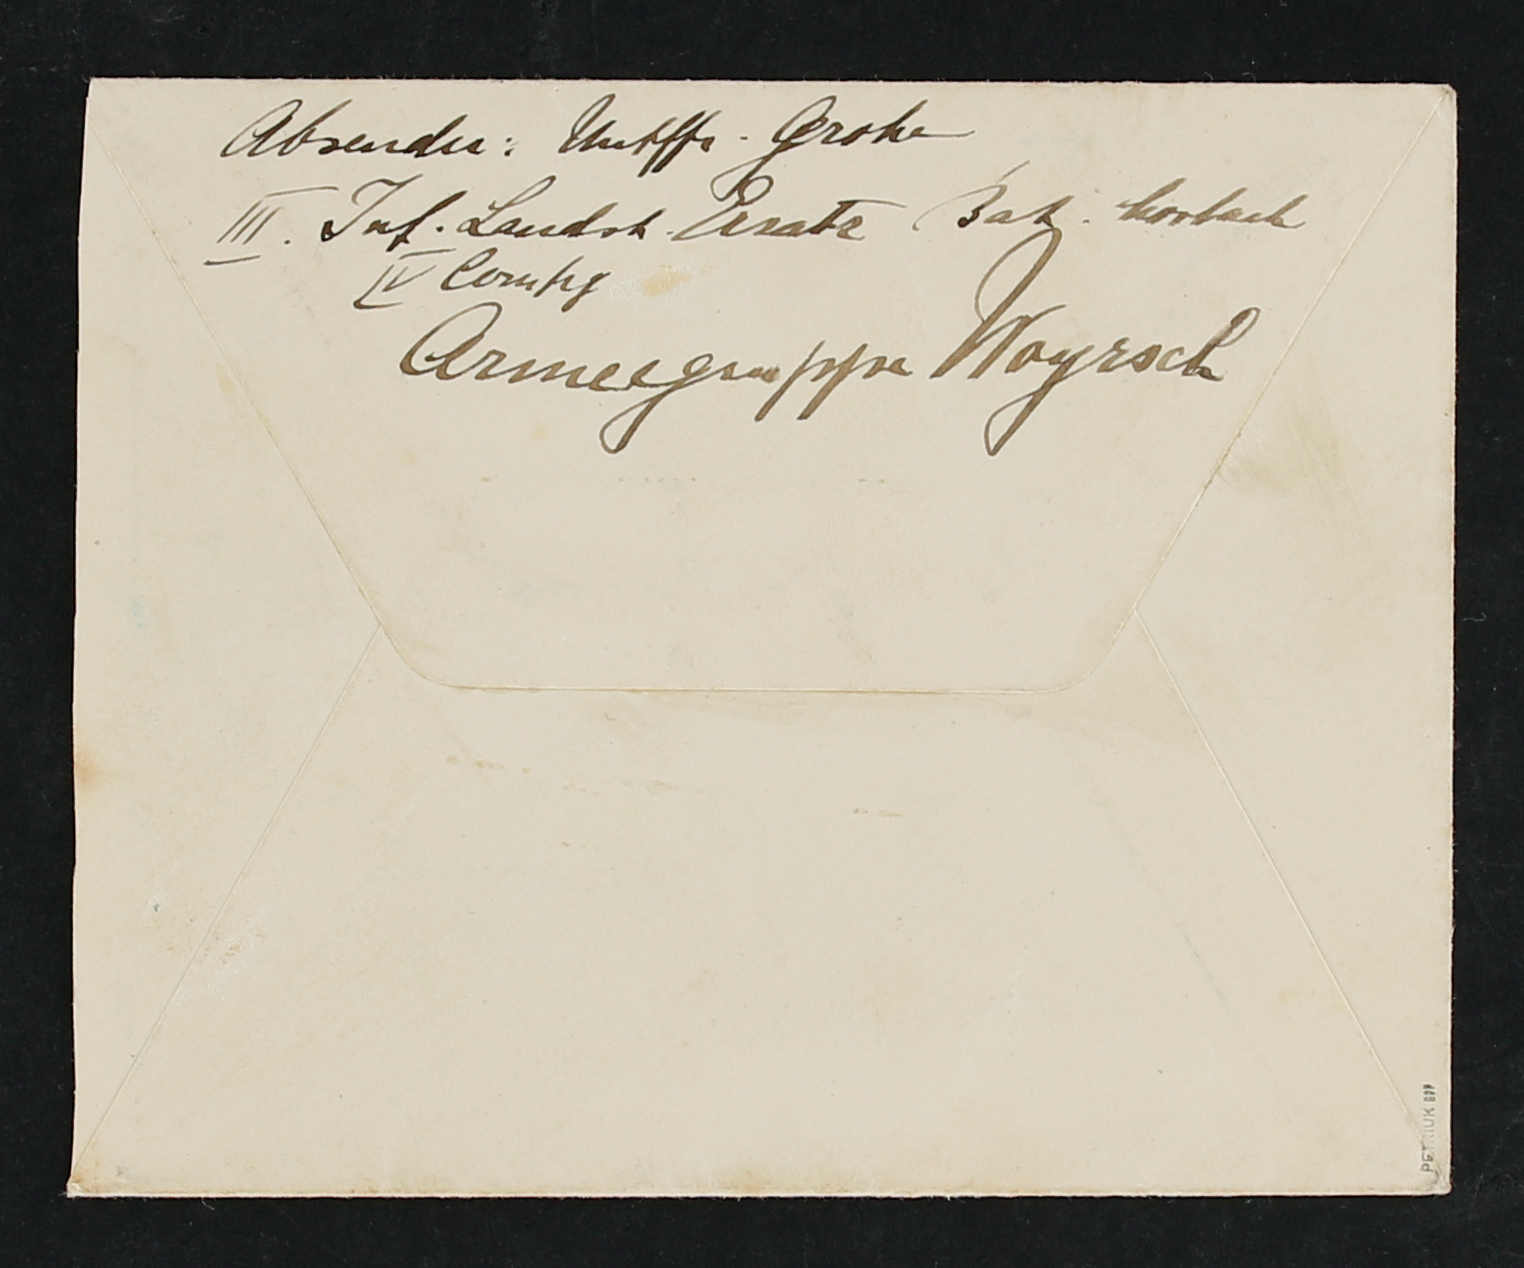 Absender: Untffz. Grohe
III. Inf. Landst. Ersatz Bat. Corbach
IV Compg
Armeegruppe Woyrsch
PETRIUK BPP